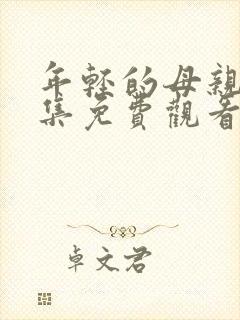 年輕的母親
集免費觀看
卓文君